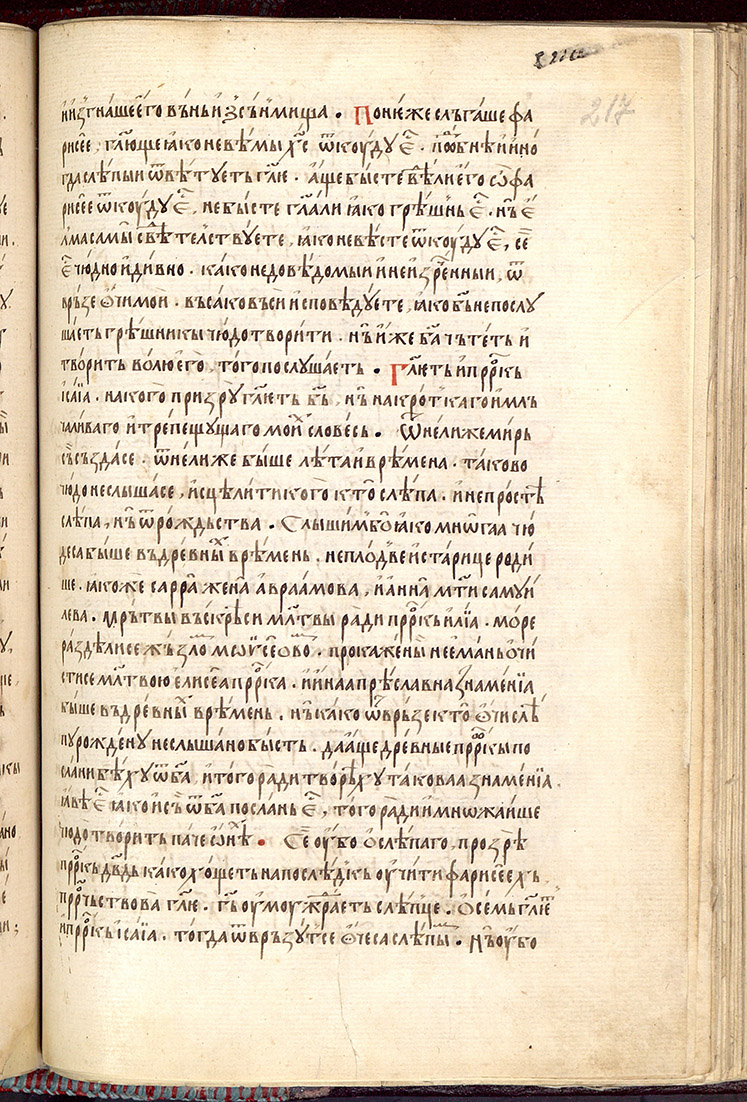 217
и изгнаше его вьнь из сьнмища. Понѥже слꙑгаше фа
рисее, глюще ꙗко не вѣмы хс ѿкоуду ѥ. подобнѣ и ино
гда слѣпыи ѿвѣтуеть гле. аще бысте вѣли его ѡ фа
рисее ѿкоуду ѥ, не бысте глали ꙗко грѣшнь ѥ. нь е
лма сами свѣтелствуете, ꙗко не вѣсте ѿкоуду ѥ, се
ѥ чюдно и дивно. како недовѣдомыи и неизреннꙑи, ѿ
врьзе очи мои. вьсако вьси исповѣдуете, ꙗко бь не послу
шаеть грѣшникы чюдотворити. нь иже ба чьтеть и
творить волю его, того послушаеть. Глеть и прркь
ісаіа. на кого призру глеть бь, нь на кроткаго и мль
чаливаго и трепещущаго моих словесь. Ѿнелиже мирь
сьсьздасе. ѿнелиже быше лѣта и времена. таково
чюдо не слышасе, исцѣлити кого кто слѣпа. и не простѣ
слѣпа, нь ѿ рождьства. Слышим бо ꙗко мнѡгаа чю
деса быше вь древных врѣмень. неплодве и старице роди
ше. ꙗкоже сарра жена авраамова, и анна мти самуи
лева. мрьтвы вьскрѣси млтвы ради прркь иліа. море
раздѣлисе жьзлом мѡусеѡво. прокажены нееманьѡчи
стисе млтвою елисеа пррка. и ина прѣславна знаменіа
быше вь древных врѣмень. нь како ѿврьзе кто очи слѣ
пу рожденну не слышано бысть. да аще древные прркы по
слани бѣху ѿ ба, и того ради творѣху таковаа знаменіа.
ꙗвѣ ѥ ꙗко и сь ѿ ба послань ѥ, того ради и мнѡжаише
чюдотворить паче ѡнѣх. Се оубо ослѣпаго, прозрѣ
прркь двдь како хощеть на послѣдкь оучити фарисеехь
пррчьствова гле. гь оумоудраеть слѣпце. ѡ семь глеть
и прркь ісаіа. тогда ѿврьзутсе очеса слѣпым. Нь оубо